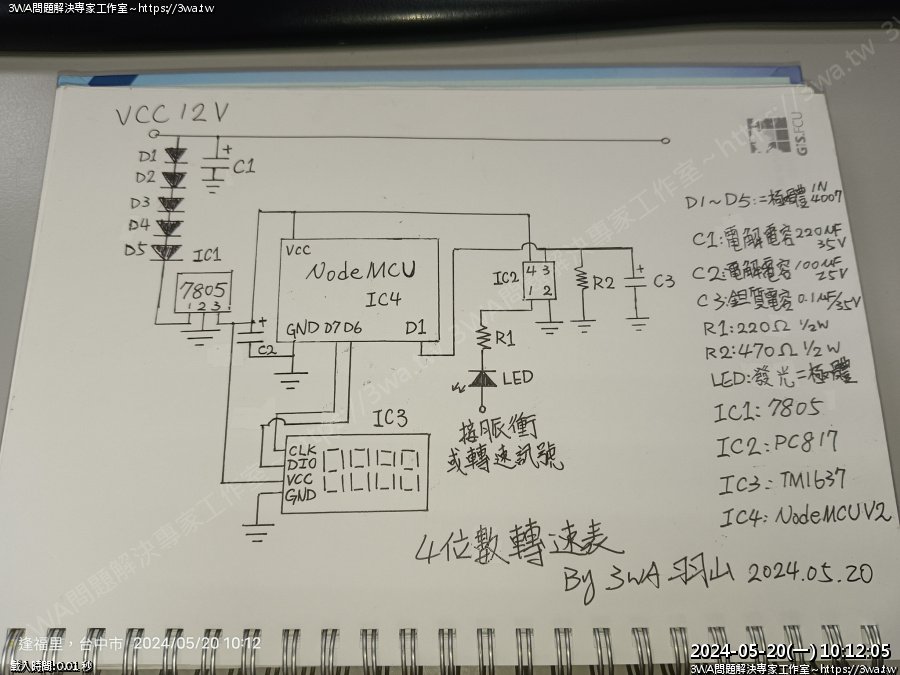 3WA問題解決專家工作室~https://3wa.tw
VCC 12V
GIS.FCU
D1
D2
D3
D4
D5
+
C1
IC1
7805
1 2 3
+
C2
VCC
NodeMCU
IC4
GND D7 D6 D1
IC2
4 3
1 2
R2
+
C3
R1
LED
接脈衝
或轉速訊號
IC3
CLK
DIO
VCC
GND
D1~D5:二極體 1N4007
C1:電解電容 220uF 35V
C2:電解電容 100uF 25V
C3:鉭質電容 0.1uF/35V
R1:220Ω 1/2W
R2:470Ω 1/2W
LED:發光二極體
IC1: 7805
IC2: PC817
IC3: TM1637
IC4: NodeMCU V2
4位數轉速表
By 3WA 羽山 2024.05.20
逢福里，台中市 2024/05/20 10:12
載入時間: 0.01 秒
2024-05-20(一) 10:12:05
3WA問題解決專家工作室~https://3wa.tw
3WA問題解決專家工作室~https://3wa.tw